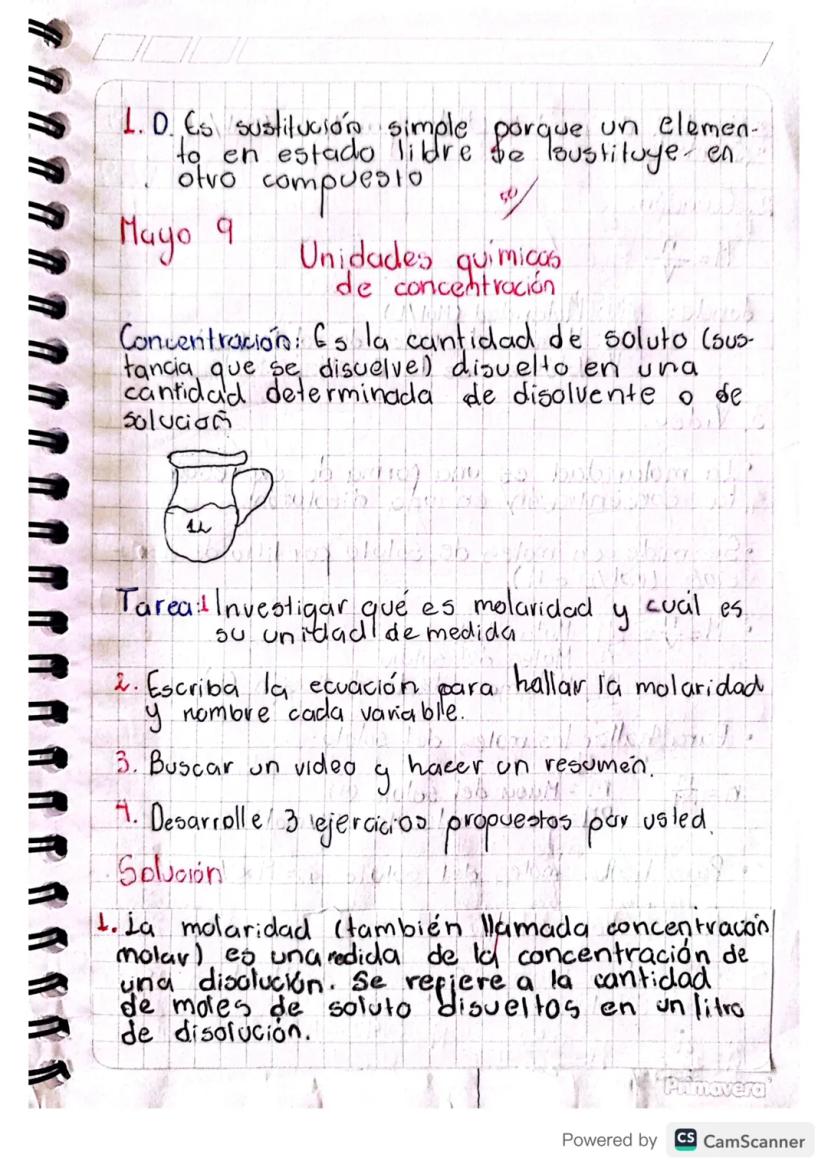 1. D. Es sustitución simple porque un elemen-
to en estado libre se sustituye en
otro compuesto
Mayo 9
Unidades químicas
de concentración
Concentración: Es la cantidad de soluto (sus-
tancia que se disuelve) disuelto en una
cantidad determinada de disolvente o de
solución
Tarea: 1 Investigar qué es molaridad y cuál es
su unidad de medida
2. Escriba la ecuación para hallar la molaridad
y nombre cada variable.
3. Buscar un video y hacer un resumen.
4. Desarrolle 3 ejercicios propuestos por usted.
Solución
1. La molaridad (también llamada concentración
molar) es una medida de la concentración de
una disolución. Se refiere a la cantidad
de moles de soluto disueltos en un litro
de disolución.
Primavera
Powered by CS CamScanner